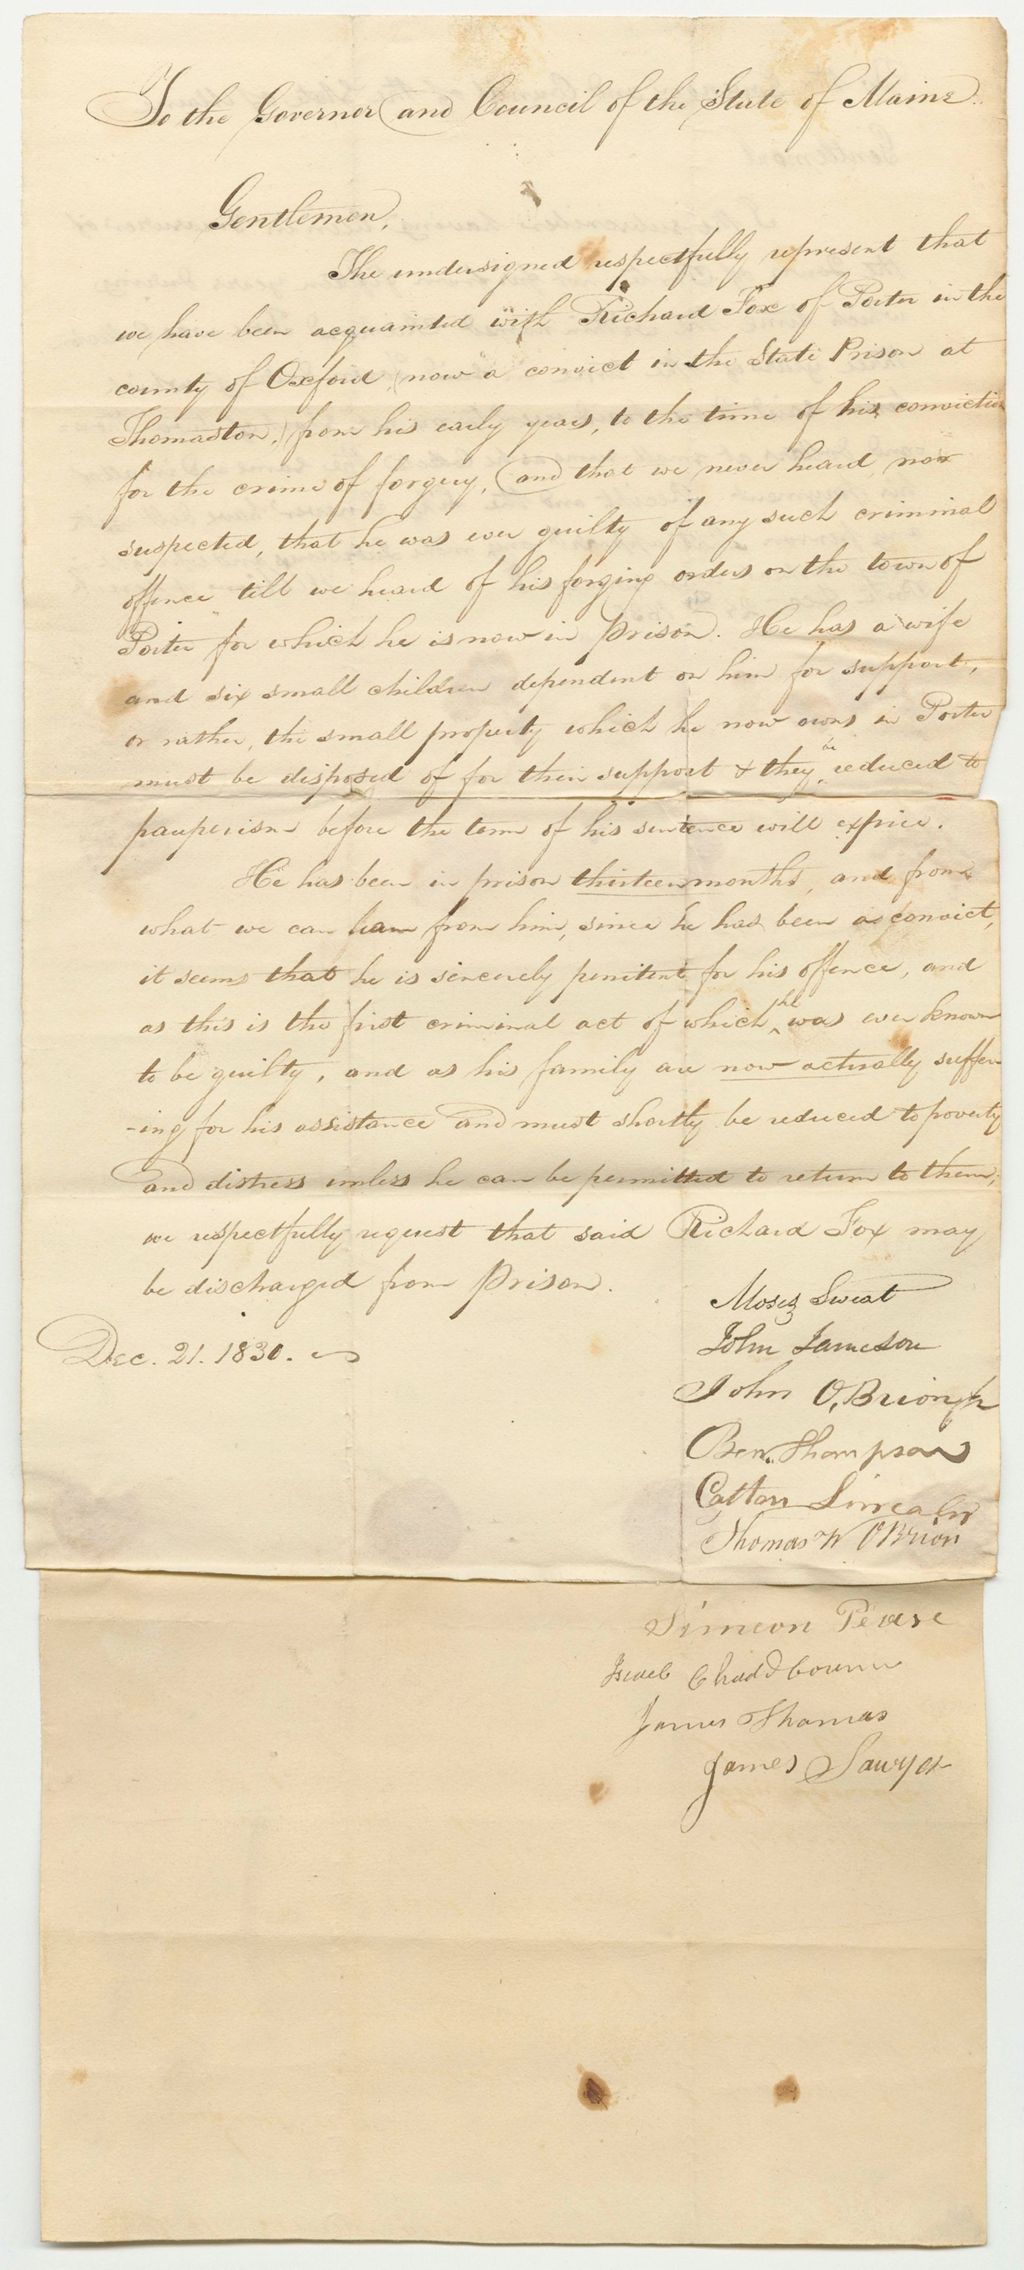 To the Governor and Council of the State of Maine.
Gentlemen,
The undersigned respectfully represent that
we have been acquainted with Richard Fox of Porter in the
county of Oxford (now a convict in the State Prison at
Thomaston,) from his early years, to the time of his conviction
for the crime of forgery, and that we never heard nor
suspected, that he was ever guilty of any such criminal
offence till we heard of his forging orders on the town of
Porter for which he is now in prison. He has a wife
and six small children dependent on him for support,
or rather, the small property which he now owns in Porter
must be disposed of for their support & they be reduced to
pauperism before the term of his sentence will expire.
He has been in prison thirteen months, and from
what we can learn from him, since he has been a convict,
it seems that he is sincerely penitent for his offence, and
as this is the first criminal act of which he was ever known
to be guilty, and as his family are now actually suffer-
-ing for his assistance and must shortly be reduced to poverty
and distress unless he can be permitted to return to them;
we respectfully request that said Richard Fox may
be discharged from prison.
Dec. 21. 1830.
Moses Sweat
John Jameson
John O,Brion
Benj. Thompson
Cotton Lincoln
Thomas W O'Brion
Simeon Pease
Israel Chadbourne
James Thomas
James Sawyer